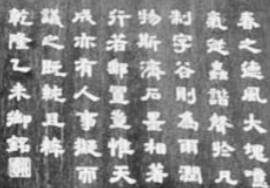 春之德風大塊噫
氣從蟲諧聲於凡
制字谷則為雨潤
物斯濟石墨相著
行若郵置豈惟天
成亦有人事擬而
議之既純且粹
乾隆乙未御銘